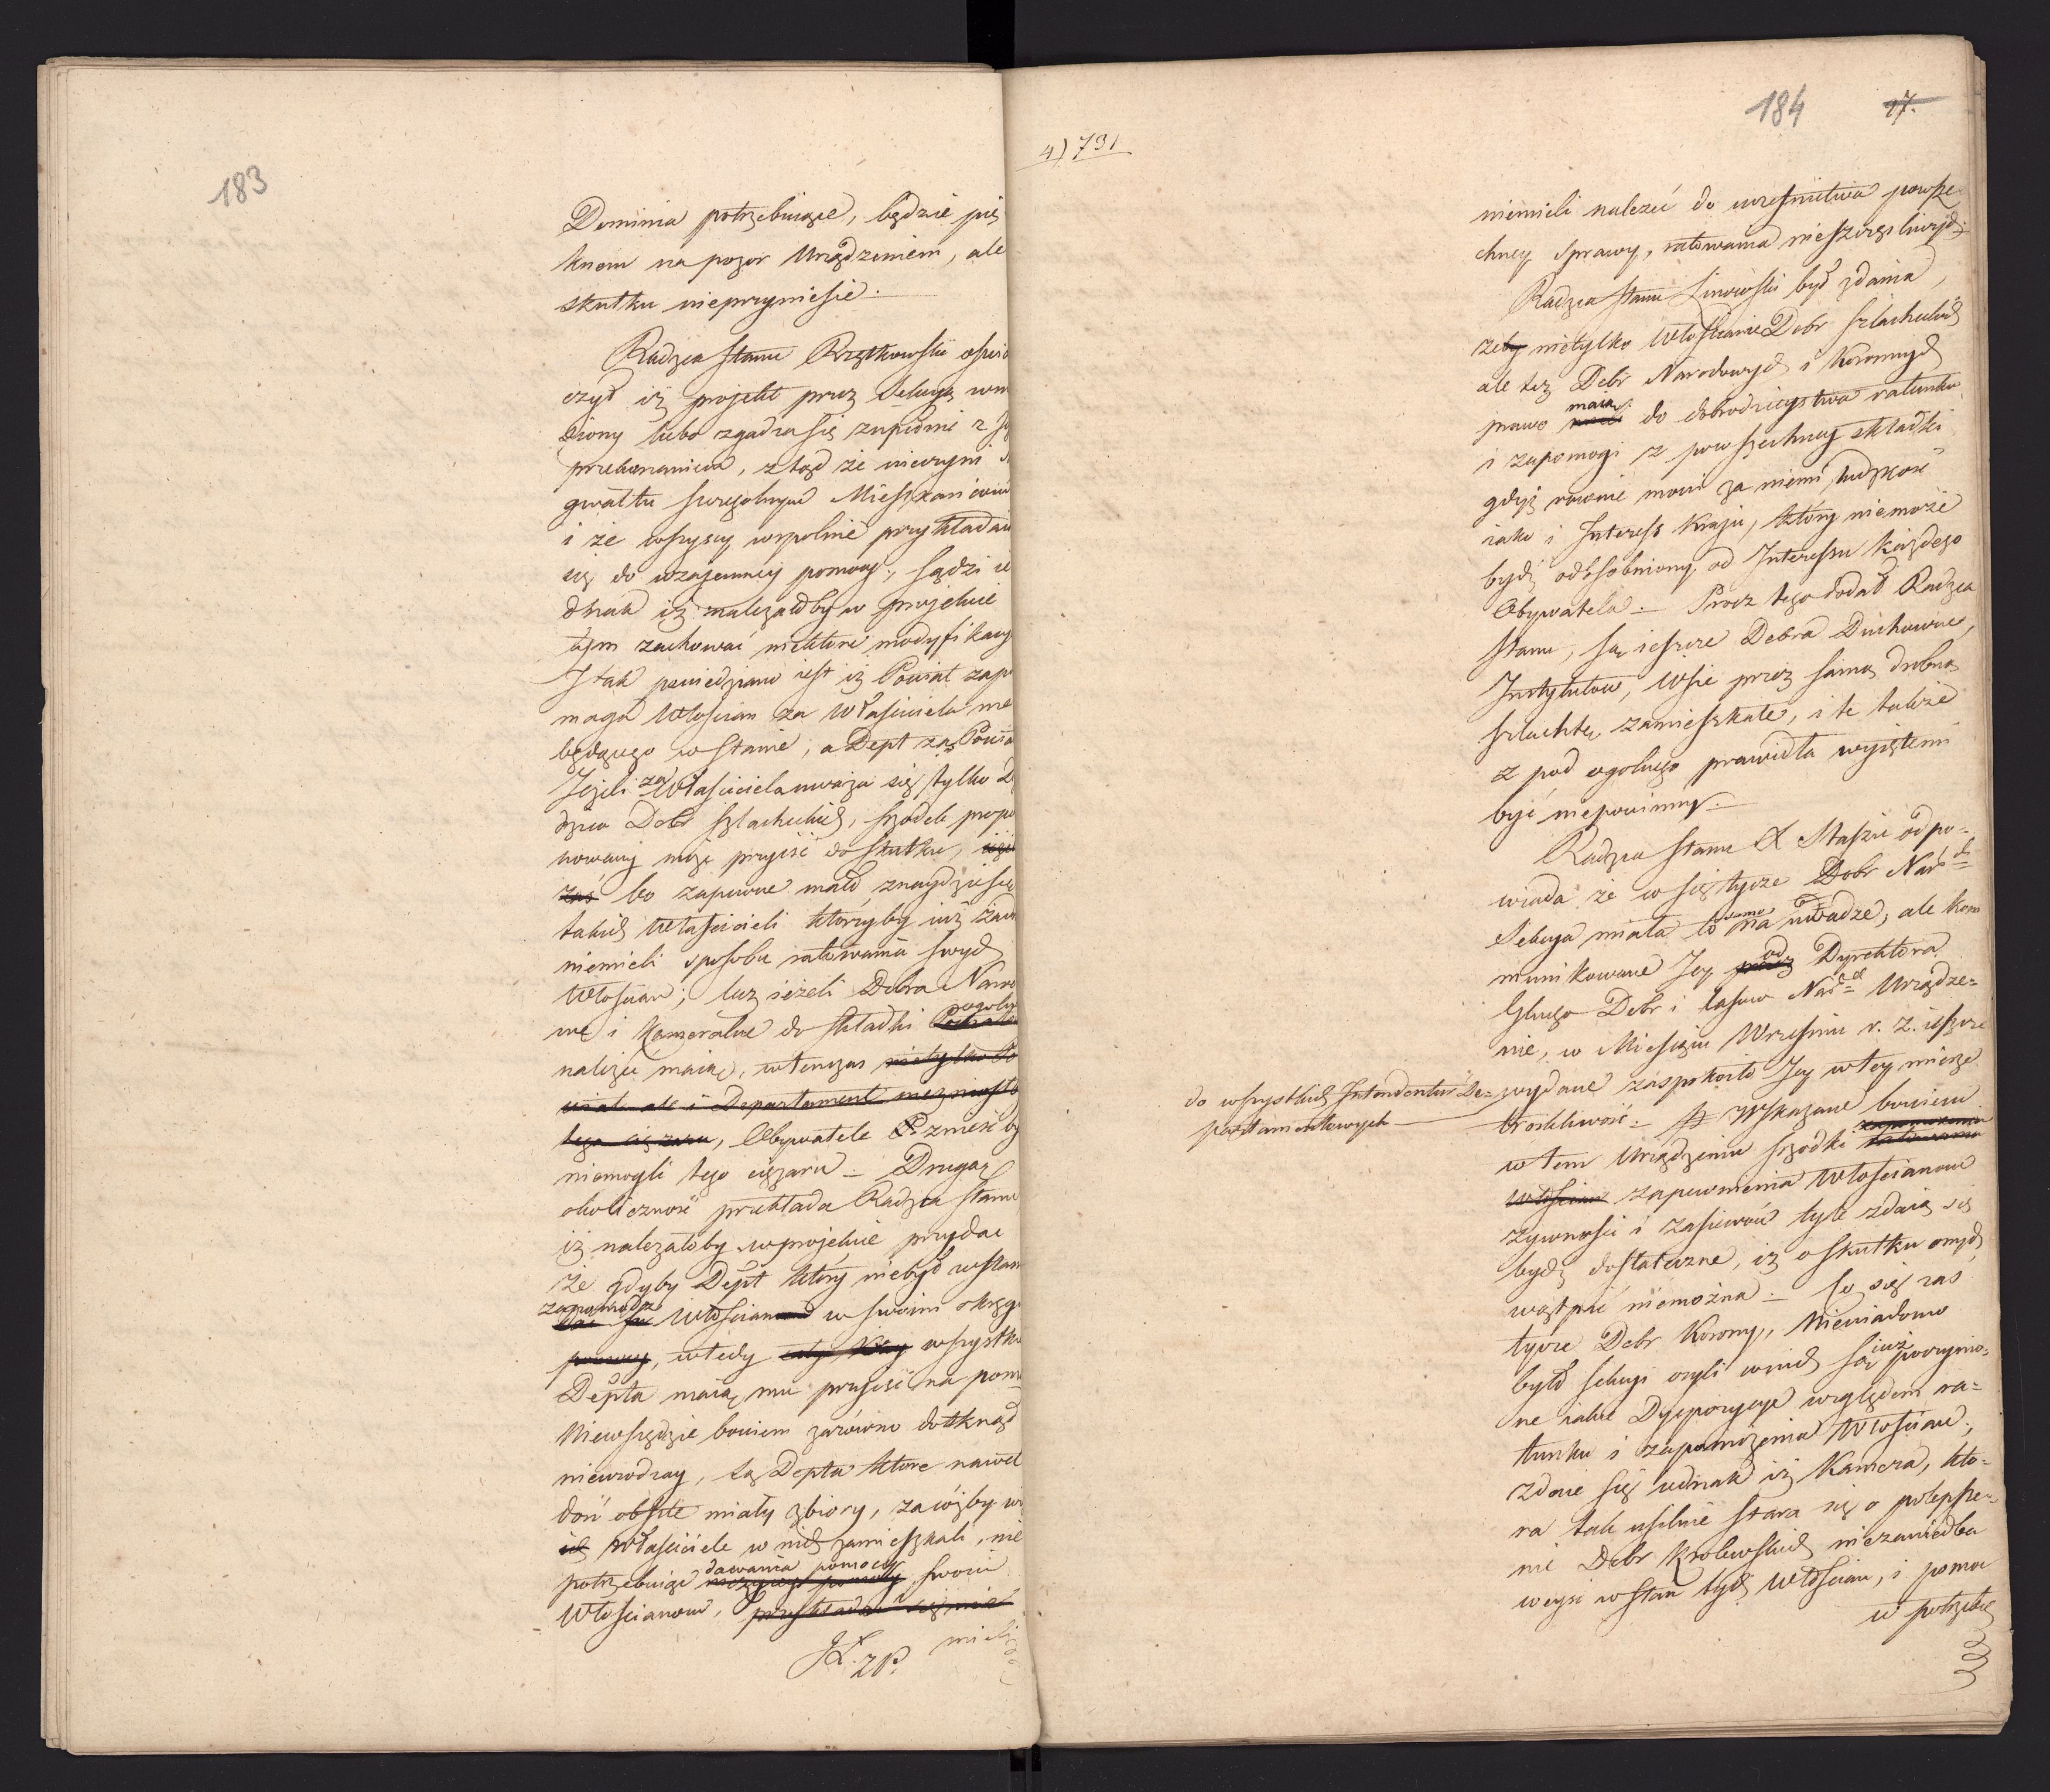 183
Dominia potrzebuiące, będzie pię
knem na pozor Urządzeniem, ale
skutku nieprzyniesie.
Radzca Stanu oświa
czył iż projekt przez Sekcyą wnie
siony lubo zgadza się zupełnie z Je
przekonaniem, ztąd że nieczyni
gwałtu szczegolnym Mieszkańcom
i że wszyscy wspolnie przykładaią
się do wzajemney pomocy, sądzi ie
dnak iż należałoby w projekcie
tym zachować niektóre modyfikacye
I tak powiedziano iest iż Powiat zapo
maga Włościan za Właściciela nie
będącego w stanie, a Dept za Powiat
Jeżeli za Właściciela uważa się tylko
dzica Dobr szlacheckich, srzodek propo
nowany może przyiść do skutku,
zaś bo zapewne mało znaydzie się
takich Właścicieli którzyby iuż żad
niemieli sposobu ratowania swych
Włościan; lecz ieżeli Dobra Naro
we i Kameralne do składki ogolney
należeć maią, wtenczas nietylko Po
wiat ale i Departament nie zniosł
tego ciężaru, Obywatele znieść by
niemogli tego ciężaru. Drugą
okoliczność przekłada Radzca Stanu
iż należałoby w projekcie przydać
że gdyby Dept który niebył w stan
zapomodz Włościan w swoim okręgu
pomocy, wtedy cały Kray wszystkie
Depta maią mu przyiść na pom
Niewszędzie bowiem zarówno dotknął
nieurodzay, są Depta które nawet
dość obfite miały zbiory,
ich Właściciele w nich zamieszkali, nie
potrzebuiąc dawania pomocy swoim
Włościanom, przykładać się nie
mieli
184 17.
4) 791
niemieli należeć do uczestnictwa powsze
chney sprawy, ratowania nieszczęśliwych.
Radzca Stanu Linowski był zdania,
żeby nietylko Włościanie Dobr szlacheckich
ale też Dobr Narodowych i Koronnych
prawo maią do dobrodzieystwa ratunku
i zapomogi z powszechney składki
gdyż rownie mowi za niemi ludzkość
iako i Interess Kraju, który niemoże
bydź odosobniony od Interessu każdego
Obywatela. Procz tego dodał Radzca
Stanu, są ieszcze Dobra Duchowne,
Instytutow, Wsie przez samą drobną
szlachtę zamieszkałe, i te także
z pod ogolnego prawidła wyiętemi
być niepowinny.
Radzca Stanu X Staszic odpo=
wiada że w się tycze Dobr Nar.ch
Sekcya miała to samo na uwadze, ale kom
munikowane Jey od Dyrektora
Glnego Dobr i Lasow Nar.ch Urządze=
nie, w Miesiącu Wrześniu r. z. ieszcze
do wszystkich Intendentur De=
partamentowych
wydane zaspokoiło Jey w tey mierze
troskliwość. # Wskazane bowiem
w tem Urządzeniu srzodki
włościan zapewnienia Włościanom
żywności i zasiewow tyle zdaią się
bydź dostateczne, iż o skutku onych
wątpić niemożna. Co się zaś
tycze Dobr Korony, Niewiadomo
było Sekcyi czyli w nich są iuż poczynio=
ne iakie Dyspozycye względem ra=
tunku i zapomożenia Włościan;
zdaie się iednak iż Kamera, któ=
ra tak usilnie stara się o polepsze=
nie Dobr Krolewskich niezaniedba
weyść w stan tych Włościan, i pomoc
w potrzebie